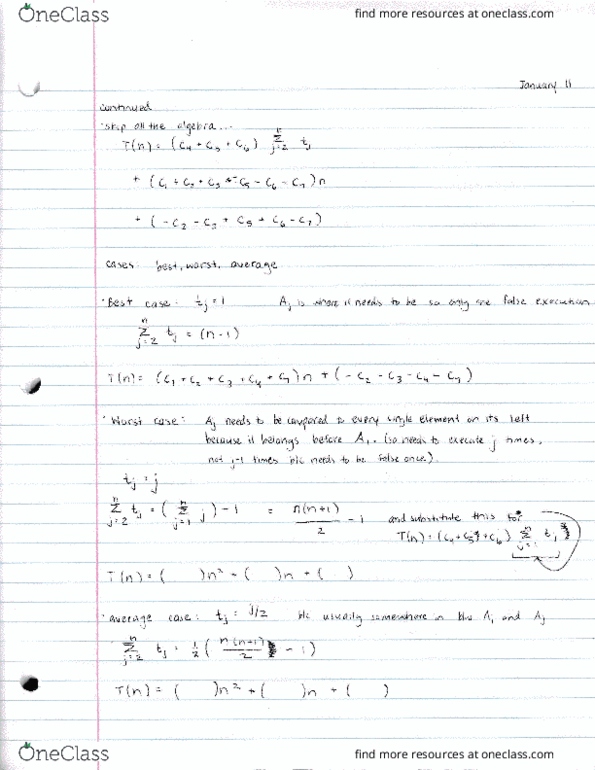 OneClass find more resources at oneclass.com
January 11
continued
· skip all the algebra...
T(n) = (C4 + C5 + C6) Σ_{j=2}^{n} tj
+ (C1 + C2 + C3 - C5 - C6 - C7)n
+ (-C2 - C3 + C5 + C6 - C7)
cases: best, worst, average
· Best case: tj = 1 Aj is where it needs to be so only one false execution
Σ_{j=2}^{n} tj = (n-1)
T(n) = (C1 + C2 + C3 + C4 + C7)n + (-C2 - C3 - C4 - C7)
· Worst case: Aj needs to be compared to every single element on its left
because it belongs before A1. (so needs to execute j times,
not j-1 times b/c needs to be false once).
tj = j
Σ_{j=2}^{n} tj = (Σ_{j=1}^{n} j) - 1 = n(n+1)/2 - 1 and substitute this for
T(n) = (C4 + C5 + C6) Σ tj
T(n) = ( )n² + ( )n + ( )
· average case: tj = j/2 b/c usually somewhere in b/w A1 and Aj
Σ_{j=2}^{n} tj = 1/2 (n(n+1)/2 - 1)
T(n) = ( )n² + ( )n + ( )
OneClass find more resources at oneclass.com